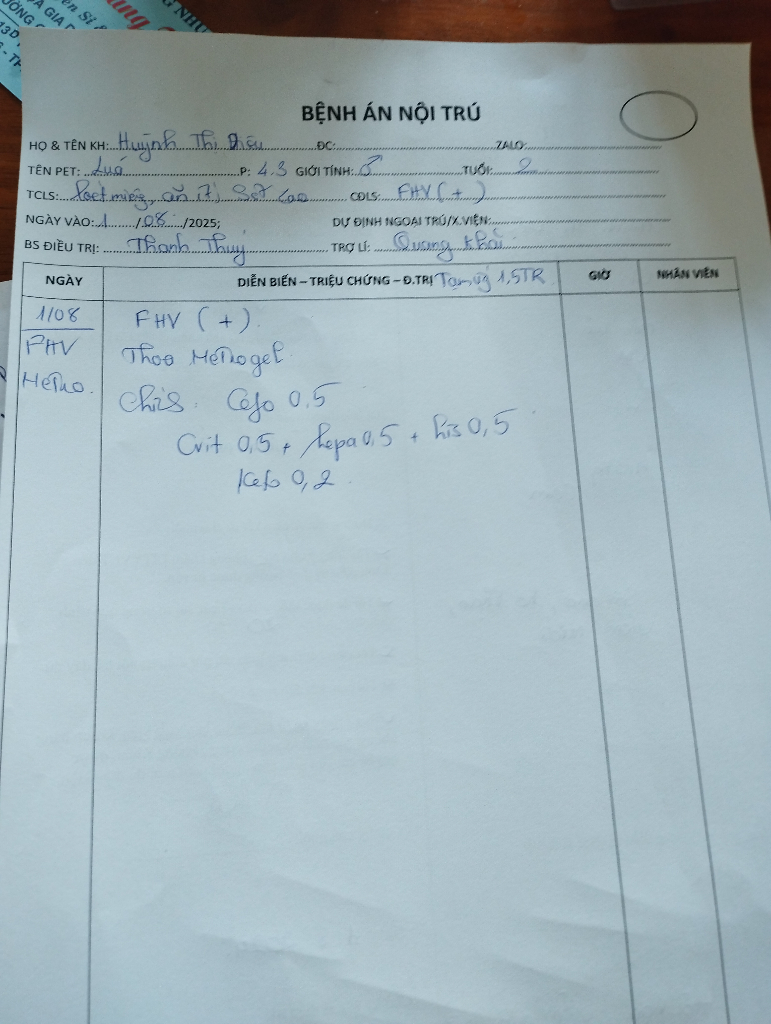 BỆNH ÁN NỘI TRÚ
HỌ & TÊN KH: Huỳnh Thị Diệu ĐC: ZALO:
TÊN PET: Luá P: 4.3 GIỚI TÍNH: ♂ TUỔI: 2
TCLS: loét miệng, ăn ít, Sốt Cao CĐLS: FHV (+)
NGÀY VÀO: 1 /08 /2025; DỰ ĐỊNH NGOẠI TRÚ/X.VIỆN:
BS ĐIỀU TRỊ: Thanh Thuý TRỢ LÍ: Quang Khải
NGÀY DIỄN BIẾN – TRIỆU CHỨNG – Đ.TRỊ Tạm ứg 1,5TR GIỜ NHÂN VIÊN
1/08 FHV (+)
FHV Thoa Methogel
Metho. Chís. Cefo 0,5
Cvit 0,5 + hepa 0,5 + his 0,5
Keto 0,2